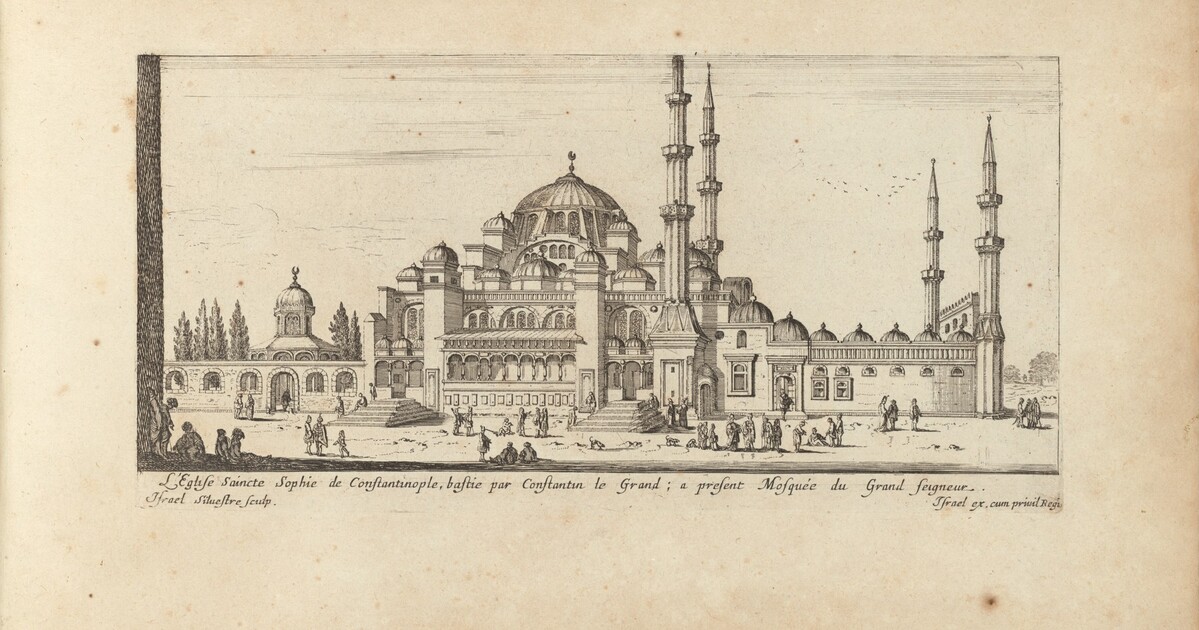 L'Eglise Saincte Sophie de Constantinople, bastie par Constantin le Grand ; a present Mosquée du Grand seigneur.
Israel Siluestre sculp.
Israel ex. cum privil Regis